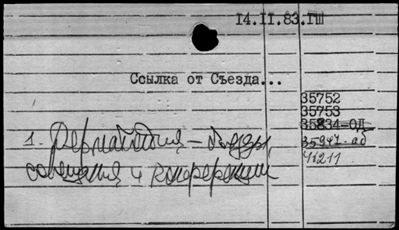 14.II.83.ГШ
Ссылка от Съезда...
35752
35753
35834-ОД
35947-об
41211
1. Дерматология - съезды,
совещания и конференции